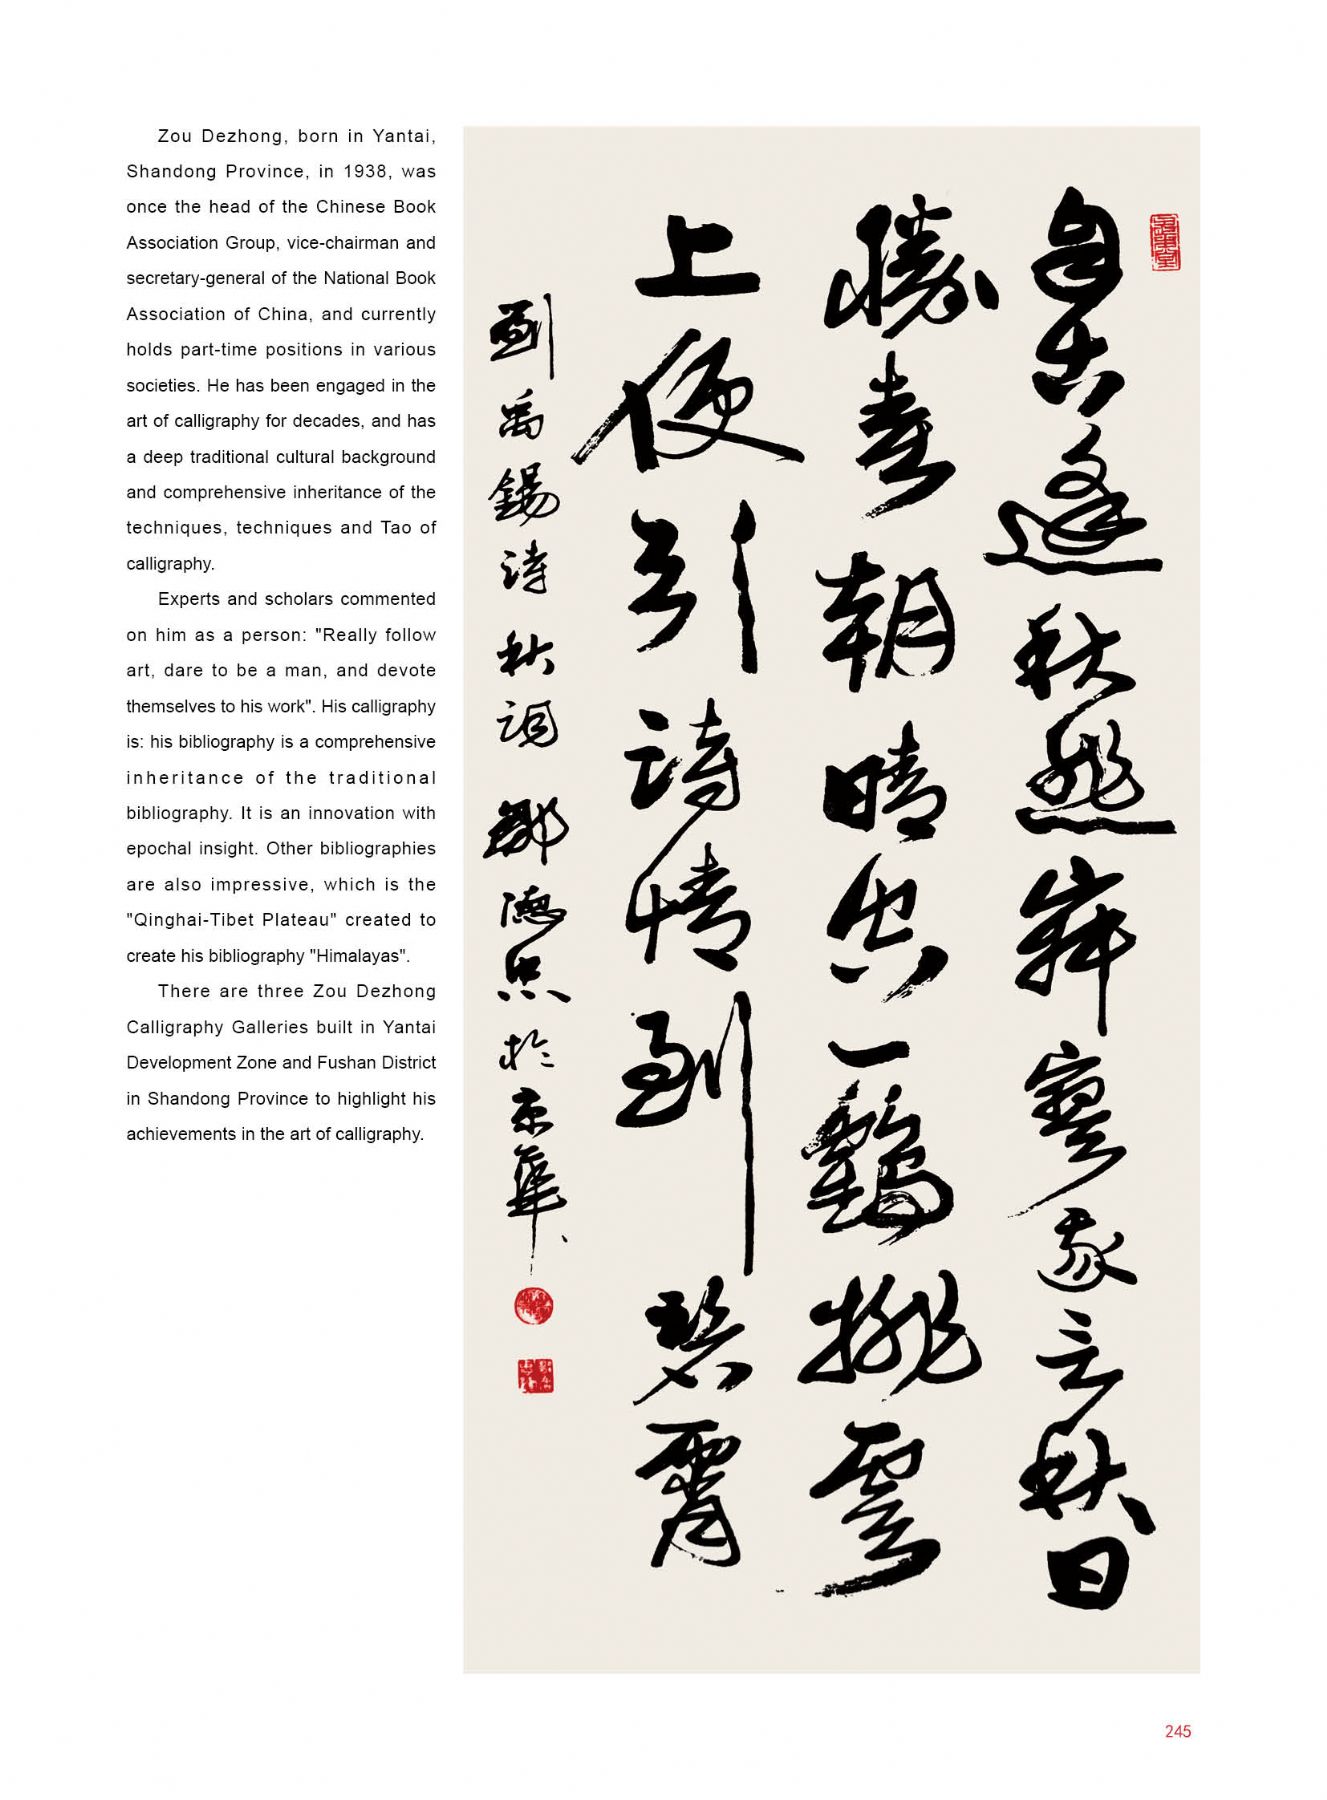 Zou Dezhong, born in Yantai,
Shandong Province, in 1938, was
once the head of the Chinese Book
Association Group, vice-chairman and
secretary-general of the National Book
Association of China, and currently
holds part-time positions in various
societies. He has been engaged in the
art of calligraphy for decades, and has
a deep traditional cultural background
and comprehensive inheritance of the
techniques, techniques and Tao of
calligraphy.
Experts and scholars commented
on him as a person: "Really follow
art, dare to be a man, and devote
themselves to his work". His calligraphy
is: his bibliography is a comprehensive
inheritance of the traditional
bibliography. It is an innovation with
epochal insight. Other bibliographies
are also impressive, which is the
"Qinghai-Tibet Plateau" created to
create his bibliography "Himalayas".
There are three Zou Dezhong
Calligraphy Galleries built in Yantai
Development Zone and Fushan District
in Shandong Province to highlight his
achievements in the art of calligraphy.
自古逢秋悲寂寥我言秋日
勝春朝晴空一鶴排雲
上便引詩情到碧霄
劉禹錫詩秋詞鄒德忠於京華
245